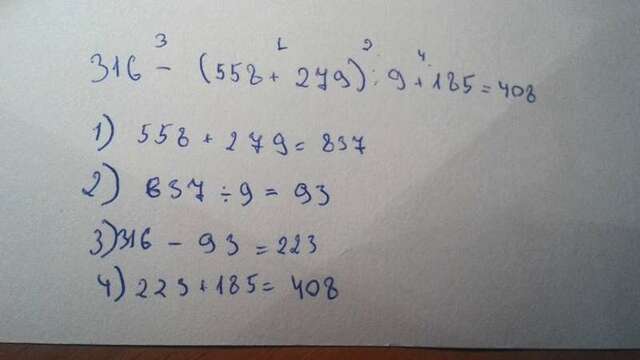 3 1 2 4
316 - (558 + 279) : 9 + 185 = 408
1) 558 + 279 = 837
2) 837 ÷ 9 = 93
3) 316 - 93 = 223
4) 223 + 185 = 408